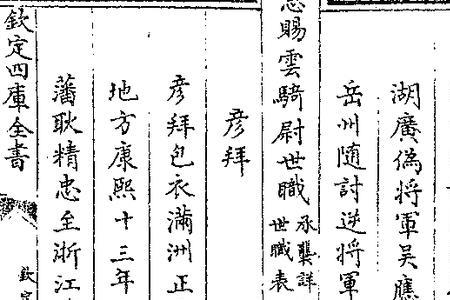 湖廣偽將軍吳應
岳州隨討逆將軍
恩賜雲騎尉世職承襲詳
世職表
彦拜
彦拜包衣滿洲正
地方康熙十三年
藩耿精忠至浙江
欽定四庫全書
欽定